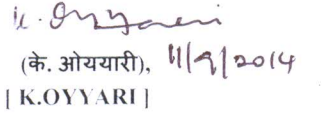 K. Oyyari
(के. ओययारी), 11/9/2014
[ K.OYYARI ]